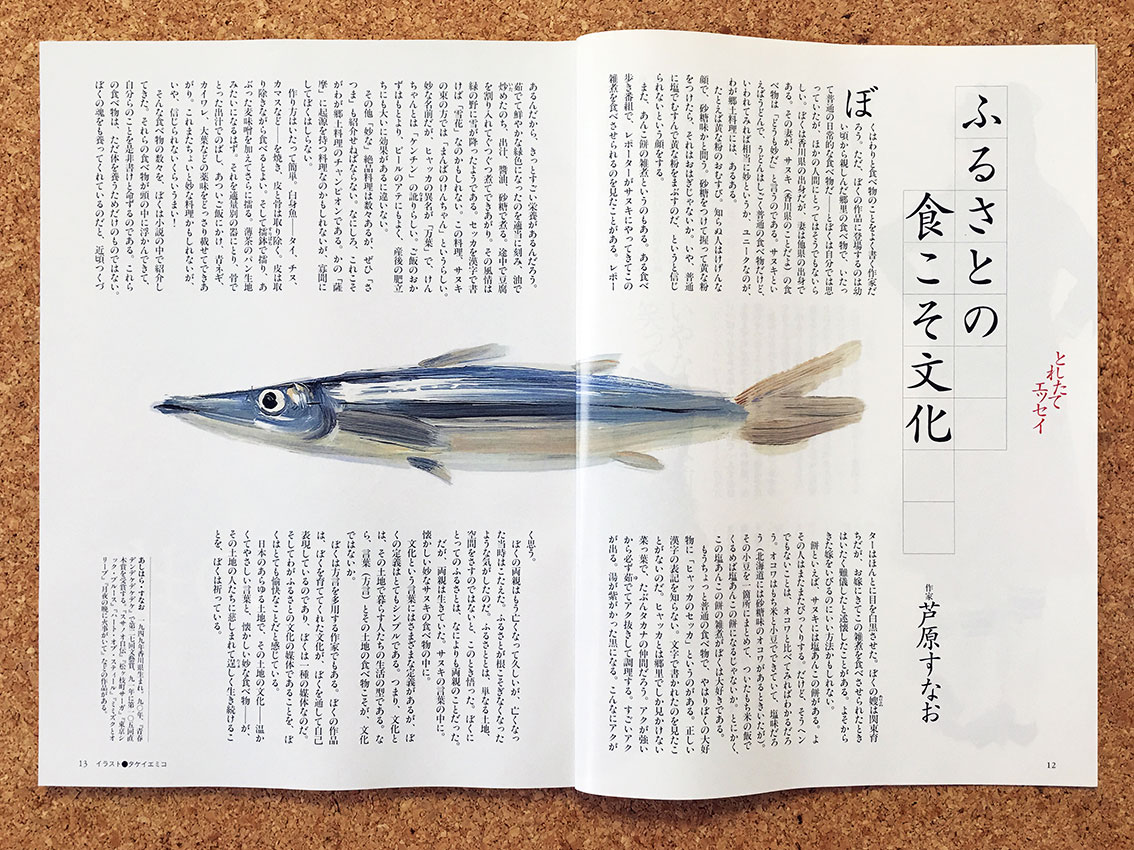 とれたて
エッセイ
ふるさとの
食こそ文化
作家 芦原すなお
ぼくはわりと食べ物のことをよく書く作家だ
ろう。ただ、ぼくの作品に登場するのは幼
い頃から親しんだ郷里の食べ物で、いたっ
て普通の日常的な食べ物だ――とぼくは自分では思
っていたが、ほかの人間にとってはそうでもないら
しい。ぼくは香川県の出身だが、妻は他県の出身で
ある。その妻が、サヌキ（香川県のことだよ）の食
べ物は「どうも妙だ」と言うのである。サヌキとい
えばうどんで、うどんはしごく普通の食べ物だけど、
いわれてみれば相当に妙というか、ユニークなのが、
わが郷土料理には、あるある。
たとえば黄な粉のおむすび。知らぬ人はけげんな
顔で、砂糖味かと問う。砂糖をつけて握って黄な粉
をつけたら、それはおはぎじゃないか。いや、普通
に塩でむすんで黄な粉をまぶすのだ、というと信じ
られないという顔をする。
また、あんこ餅の雑煮というのもある。ある食べ
歩き番組で、レポーターがサヌキにやってきてこの
雑煮を食べさせられるのを見たことがある。レポー
ターはほんとに目を白黒させた。ぼくの嫂は関東育
ちだが、お嫁にきてこの雑煮を食べさせられたとき
はいたく難儀したと述懐したことがある。よそから
きた嫁をいびるのにいい方法かもしれない。
餅といえば、サヌキには塩あんこの餅がある。よ
その人はまたまたびっくりする。だけど、そうヘン
でもないことは、オコワと比べてみればわかるだろ
う。オコワはもち米と小豆でできていて、塩味だろ
う（北海道には砂糖味のオコワがあるときいたが）。
その小豆を一箇所にまとめて、ついたもち米の飯で
くるめば塩あんこの餅になるじゃないか。とにかく、
この塩あんこの餅の雑煮がぼくは大好きである。
もうちょっと普通の食べ物で、やはりぼくの大好
物に「ヒャッカのセッカ」というのがある。正しい
漢字の表記を知らない。文字で書かれたのを見たこ
とがないのだ。ヒャッカとは郷里でしか見かけない
菜っ葉で、たぶんタカナの仲間だろう。アクが強い
から必ず茹でてアク抜きして調理する。すごいアク
が出る。湯が紫がかった黒になる。こんなにアクが
12
あるんだから、きっとすごい栄養があるんだろう。
茹でて鮮やかな緑色になったのを適当に刻み、油で
炒めたのち、出汁、醬油、砂糖で煮る。途中で豆腐
を割り入れてぐつぐつ煮てできあがり。その風情は
緑の野に雪が降ったようである。セッカを漢字で書
けば「雪花」なのかもしれない。この料理、サヌキ
の東の方では「まんばのけんちゃん」というらしい。
妙な名前だが、ヒャッカの異名が「万葉」で、けん
ちゃんとは「ケンチン」の訛りらしい。ご飯のおか
ずはもとより、ビールのアテにもよく、産後の肥立
ちにも大いに効果があるに違いない。
その他「妙な」絶品料理は数々あるが、ぜひ「さ
つま」も紹介せねばならない。なにしろ、これこそ
がわが郷土料理のチャンピオンである。かの「薩
摩」に起源を持つ料理なのかもしれないが、寡聞に
してぼくはしらない。
作り方はいたって簡単。白身魚――タイ、チヌ、
カマスなど――を焼き、皮と骨は取り除く。皮は取
り除きながら食べるとよい。そして擂鉢で擂り、あ
ぶった麦味噌を加えてさらに擂る。薄茶のパン生地
みたいになるはず。それを適量別の器にとり、骨で
とった出汁でのばし、あついご飯にかけ、青ネギ、
カイワレ、大葉などの薬味をどっさり載せてできあ
がり。これまたちょいと妙な料理かもしれないが、
いや、信じられないくらいうまい！
そんな食べ物の数々を、ぼくは小説の中で紹介し
てきた。それらの食べ物が頭の中に浮かんできて、
自分らのことを是非書けと命ずるのである。これら
の食べ物は、ただ体を養うためだけのものではない。
ぼくの魂をも養ってくれているのだと、近頃つくづ
く思う。
ぼくの両親はもう亡くなって久しいが、亡くなっ
た当時はこたえた。ふるさとが根こそぎなくなった
ような気がしたのだ。ふるさととは、単なる土地、
空間をさすのではないと、このとき悟った。ぼくに
とってのふるさとは、なによりも両親のことだった。
だが、両親は生きていた。サヌキの言葉の中に。
懐かしい妙なサヌキの食べ物の中に。
文化という言葉にはさまざまな定義があるが、ぼ
くの定義はとてもシンプルである。つまり、文化と
は、その土地で暮らす人たちの生活の型である。な
ら、言葉（方言）とその土地の食べ物こそが、文化
ではないか。
ぼくは方言を多用する作家でもある。ぼくの作品
は、ぼくを育ててくれた文化が、ぼくを通して自己
表現しているのであり、ぼくは一種の媒体なのだ。
そしてわがふるさとの文化の媒体であることを、ぼ
くはとても愉快なことだと感じている。
日本のあらゆる土地で、その土地の文化――温か
くてやさしい言葉と、懐かしい妙な食べ物――が、
その土地の人たちに慈しまれて逞しく生き続けるこ
とを、ぼくは祈っている。
あしはら・すなお 一九四九年香川県生まれ。九〇年、「青春
デンデケデケデケ」で第二十七回文藝賞、九一年に第一〇五回直
木賞を受賞する。「スサノオ自伝」「松ヶ枝町サーガ」「東京シ
ック・ブルース」「ハート・オブ・スティール」「ミミズクとオ
リーブ」「月夜の晩に火事がいて」などの作品がある。
13 イラスト●タケイエミコ